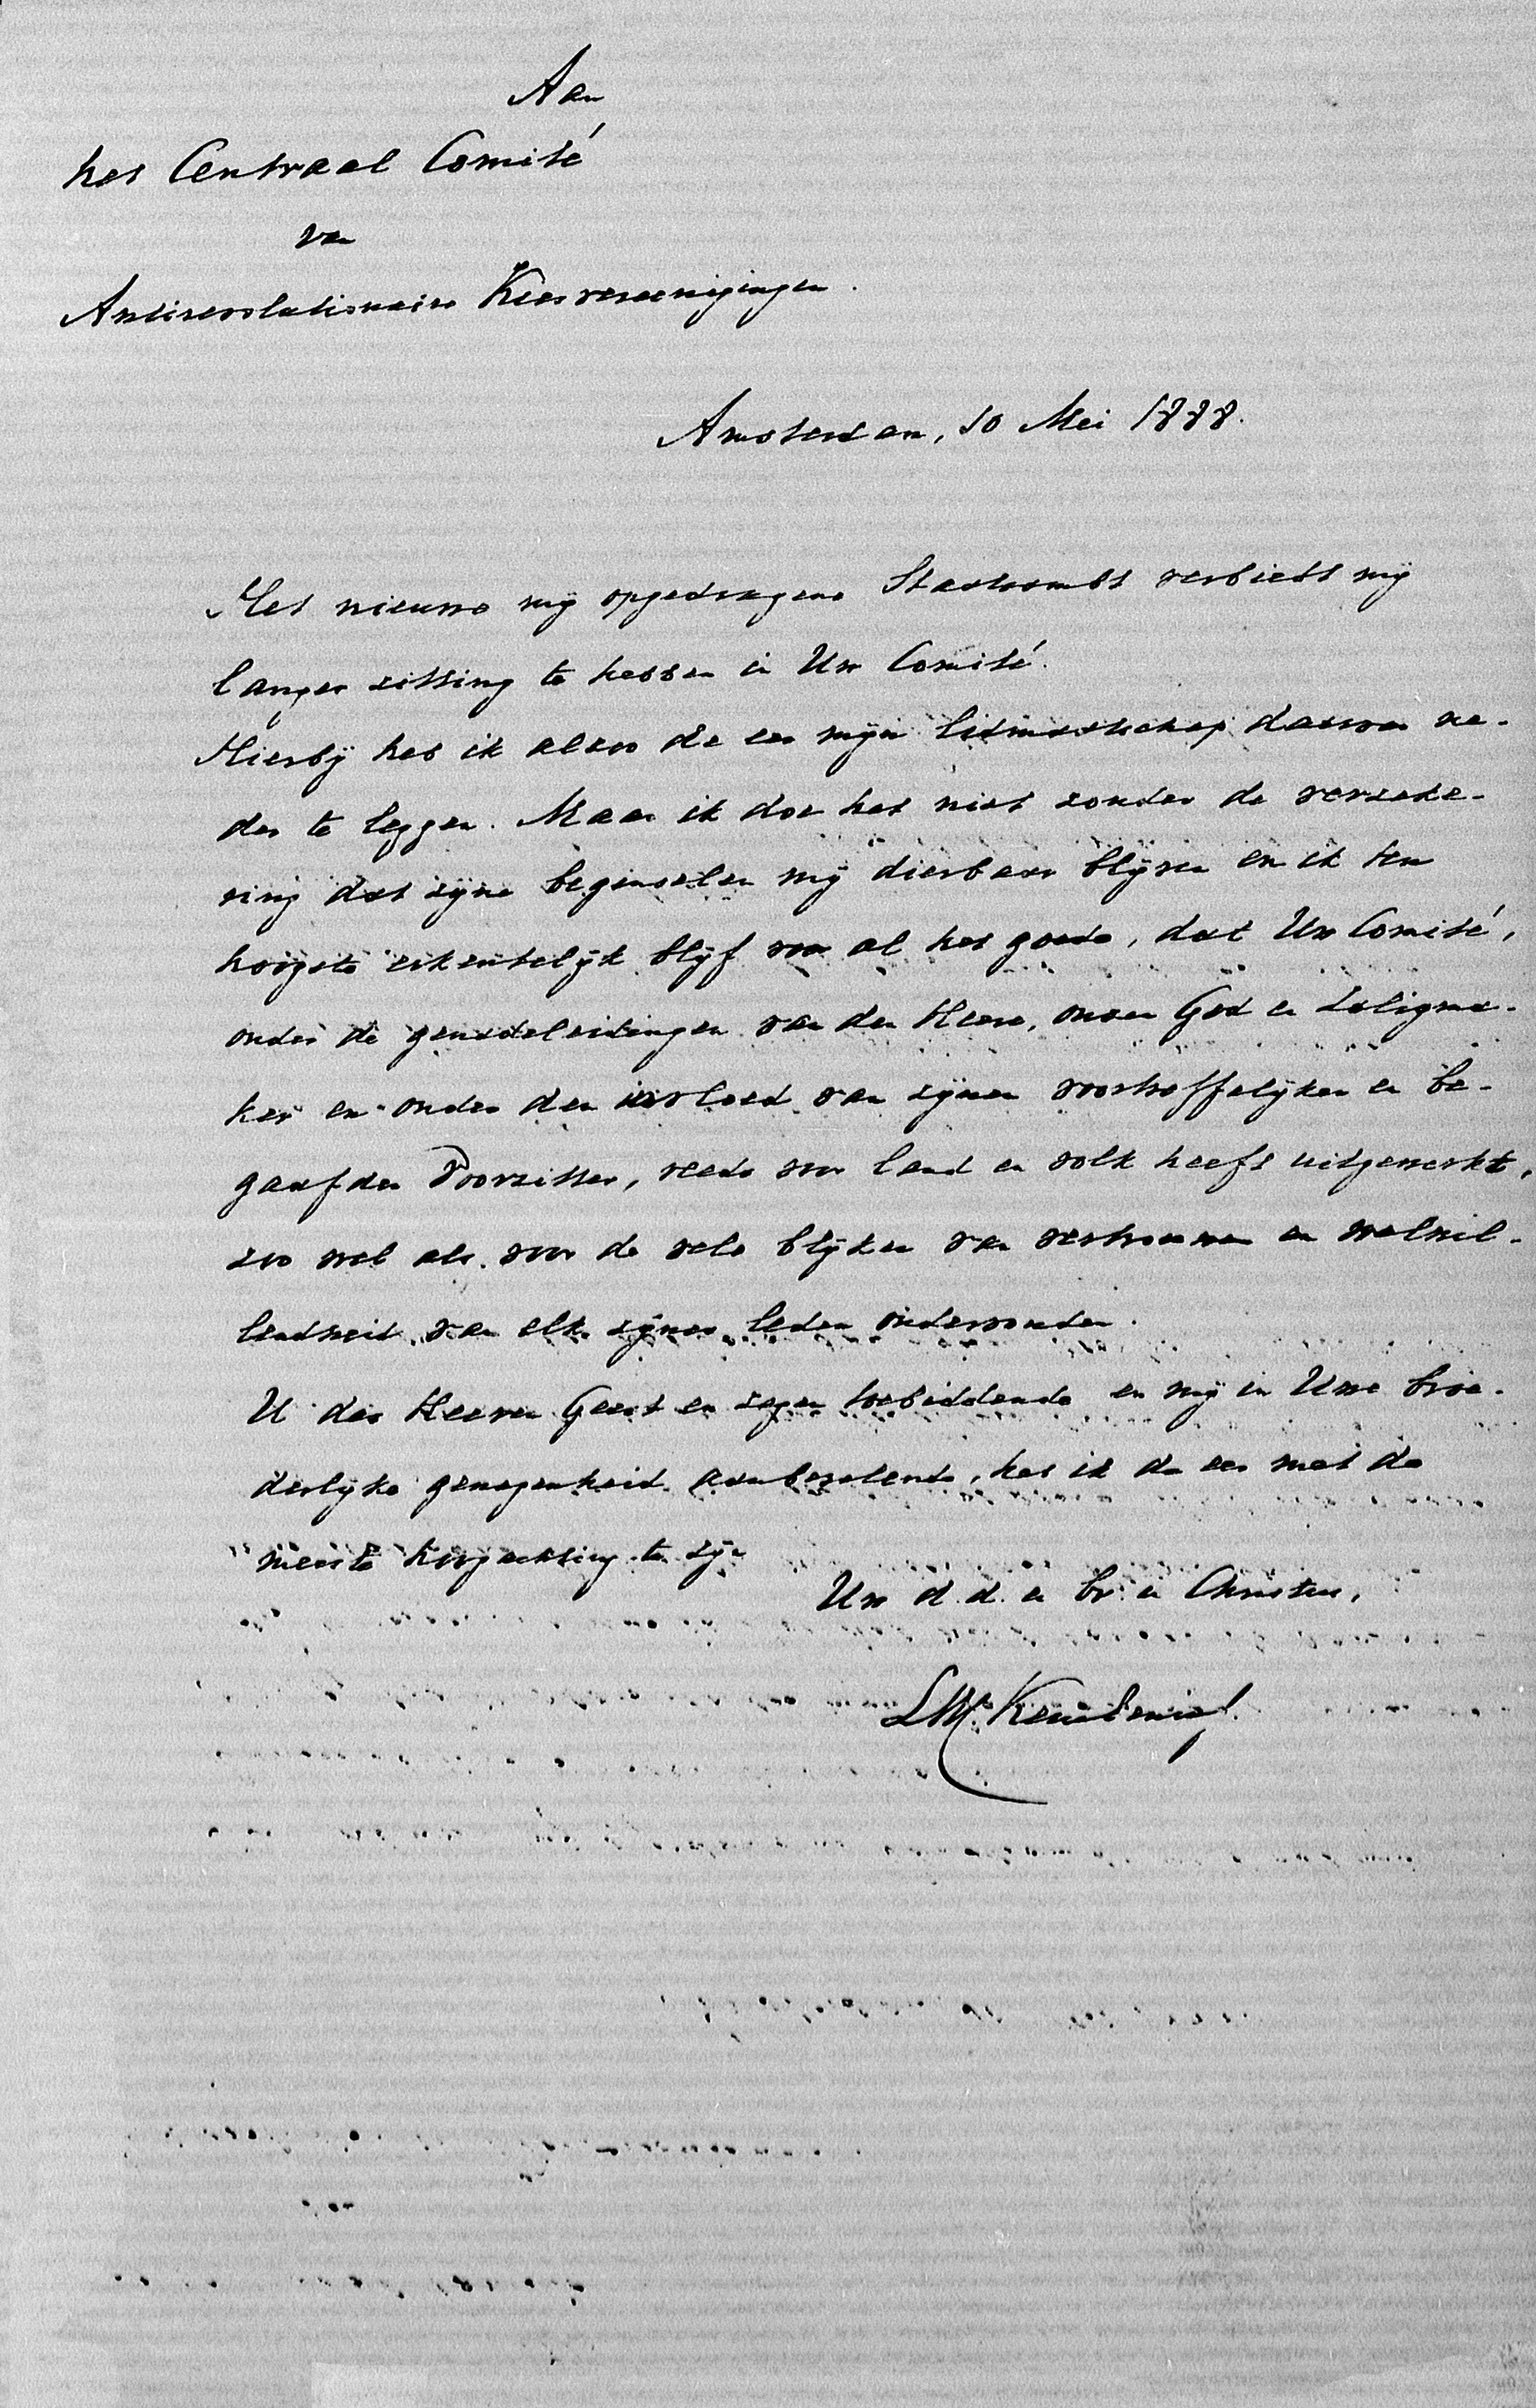 Aan
het Centraal Comité
van
Antirevolutionaire Kiesvereenigingen.
Amsterdam, 10 Mei 1888.
Het nieuwe mij opgedragene Staatsambt verbiedt mij
langer zitting te hebben in Uw Comité.
Hierbij heb ik alzoo de eer mijn lidmaatschap daarvan ne-
der te leggen. Maar ik doe het niet zonder de verzeke-
ring dat zijne beginselen mij dierbaar blijven en ik ten
hoogste erkentelijk blijf voor al het goede, dat Uw Comité,
onder de genadeleidingen van den Heere, onzen God en Zaligma-
ker en onder den invloed van zijnen voortreffelijken en be-
gaafden Voorzitter, reeds voor land en volk heeft uitgewerkt,
zoo wel als voor de vele blijken van vertrouwen en welwil-
lendheid van elk zijner leden ondervonden.
U des Heeren Geest en zegen toebiddende en mij in Uwe broe-
derlijke genegenheid aanbevelende, heb ik de eer met de
meeste hoogachting te zijn
Uw d.d. en br. in Christus,
LWC Keuchenius